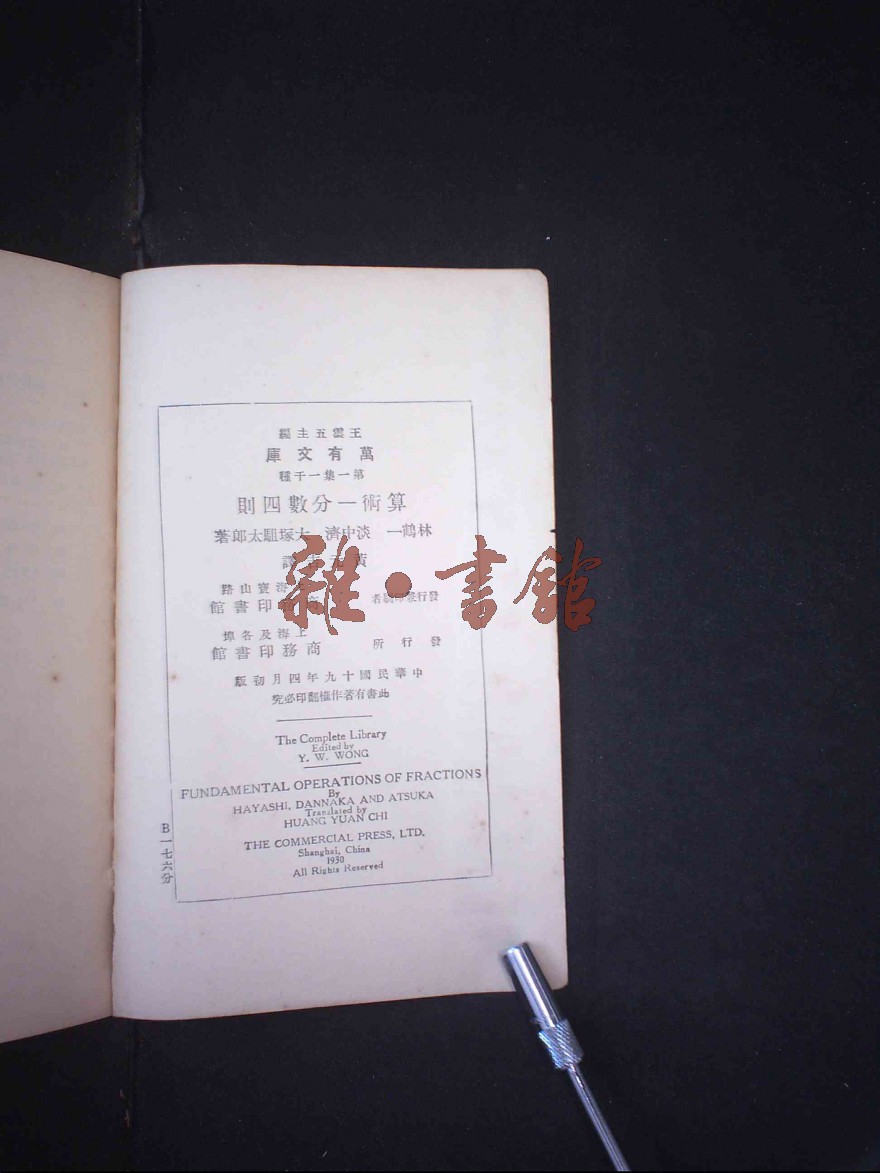 王雲五主編
萬有文庫
第一集一千種
算術—分數四則
林鶴一 淡中濟 大塚馹太郎著
黃元吉譯
上海寶山路
發行兼印刷者 商務印書館
上海及各埠
發行所 商務印書館
中華民國十九年四月初版
此書有著作權翻印必究
The Complete Library
Edited by
Y. W. WONG
FUNDAMENTAL OPERATIONS OF FRACTIONS
By
HAYASHI, DANNAKA AND ATSUKA
Translated by
HUANG YUAN CHI
THE COMMERCIAL PRESS, LTD.
Shanghai, China
1930
All Rights Reserved
B一七六分
雜·書館